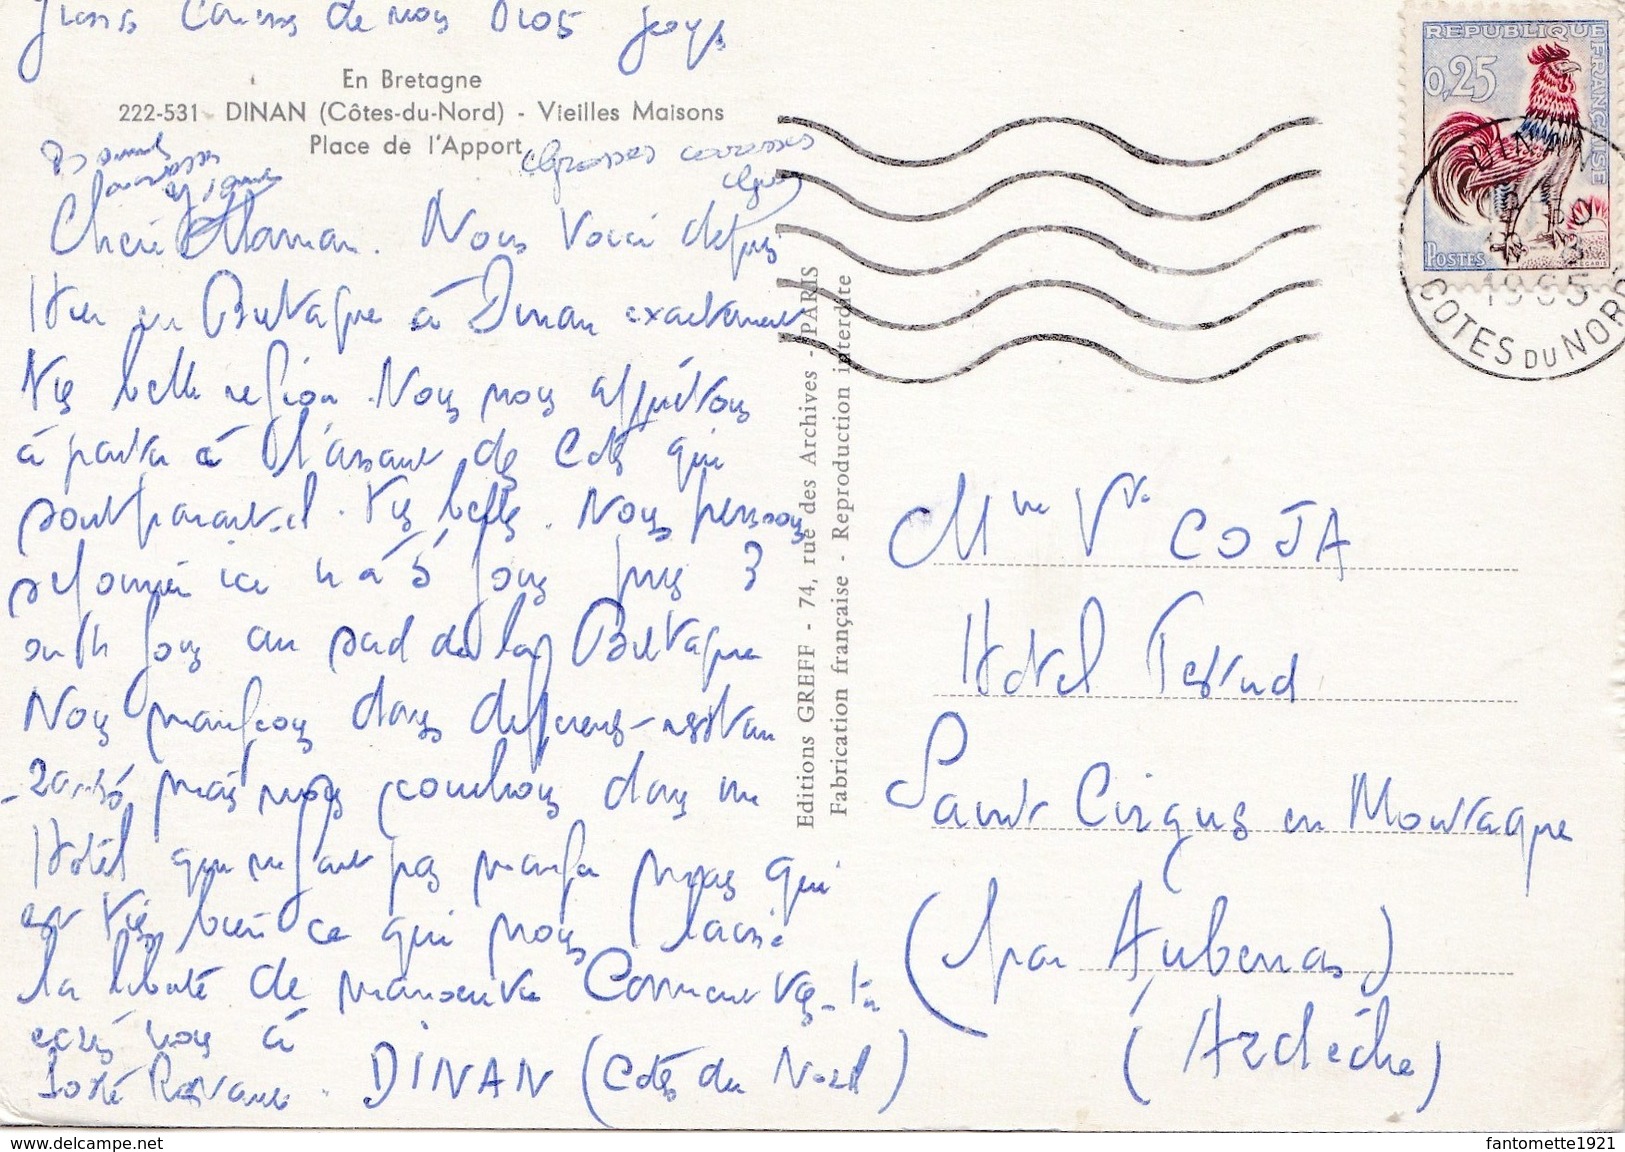 de nous
En Bretagne
222-531 - DINAN (Côtes-du-Nord) - Vieilles Maisons
Place de l'Apport
Grosses caresses
Chérie Maman. Nous Voici depuis
Hier en Bretagne à Dinan exactement
Très belle région. Nous nous apprêtons
à partir à l'assaut des Côtes qui
sont parait-il très belles. Nous pensons
séjourner ici 4 à 5 jours puis 3
ou 4 jours au sud de la Bretagne
Nous mangeons dans différents restau
-rants mais nous couchons dans un
Hôtel qui ne fait pas manger mais qui
est très bien ce qui nous laisse
la liberté de manoeuvre Comment vas-tu
écris nous à
Poste Restante. DINAN (Côtes du Nord)
Editions GREFF - 74, rue des Archives - PARIS
Fabrication française - Reproduction interdite
REPUBLIQUE FRANÇAISE
0,25
POSTES
DINAN
1965
COTES DU NORD
Mme Vve COJA
Hotel Testud
Saint Cirgues en Montagne
(par Aubenas)
(Ardèche)
www.delcampe.net
fantomette1921